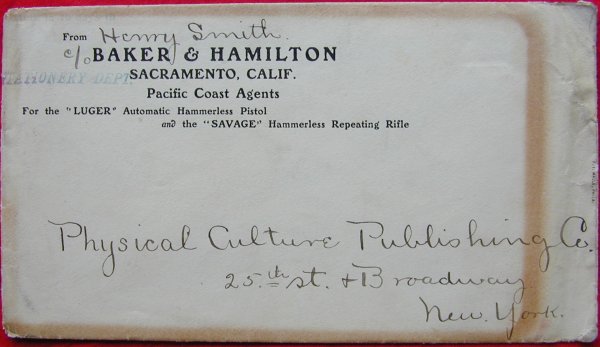 From Henry Smith.
c/o BAKER & HAMILTON
SACRAMENTO, CALIF.
STATIONERY DEPT.
Pacific Coast Agents
For the "LUGER" Automatic Hammerless Pistol
and the "SAVAGE" Hammerless Repeating Rifle
Physical Culture Publishing Co.
25.th st. & Broadway
New. York.